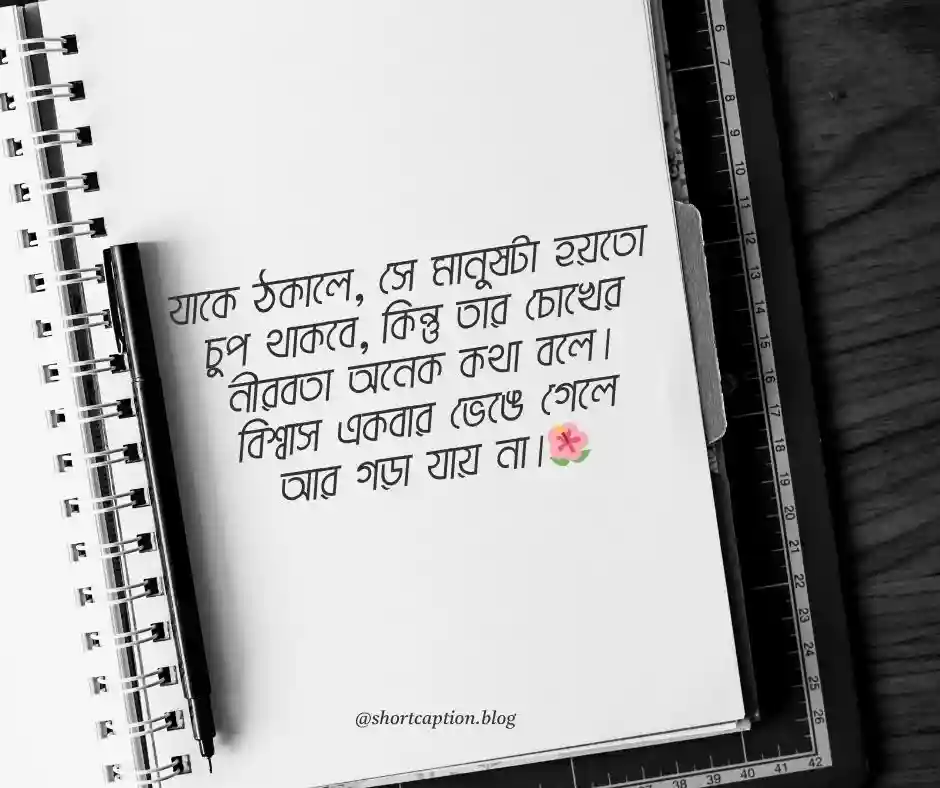 যাকে ঠকালে, সে মানুষটা হয়তো
চুপ থাকবে, কিন্তু তার চোখের
নীরবতা অনেক কথা বলে।
বিশ্বাস একবার ভেঙে গেলে
আর গড়া যায় না।🌺
@shortcaption.blog
6
7
8
9
10
11
12
13
14
15
16
17
18
19
20
21
22
23
24
25
26
38 39 40 41 42